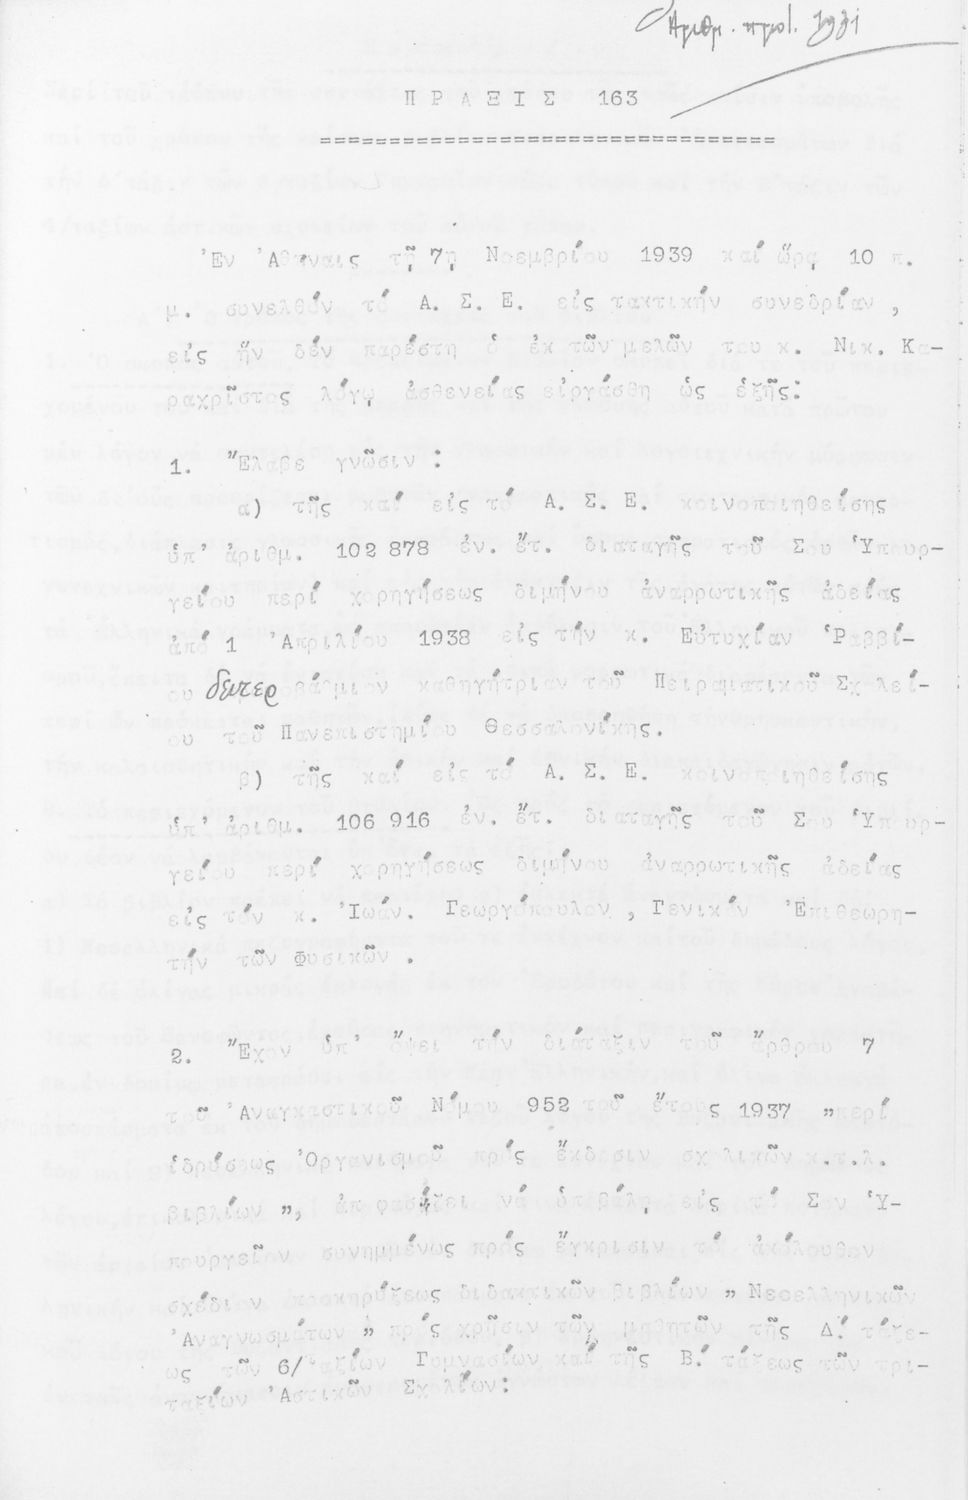 Ἀριθμ. πρωτ.
ΠΡΑΞΙΣ 163
Ἐν Ἀθήναις τῇ 7ῃ Νοεμβρίου 1939 καί ὥρᾳ 10 π.
μ. συνελθόν τό Α. Σ. Ε. εἰς τακτικήν συνεδρίαν ,
εἰς ἥν δέν παρέστη ὁ ἐκ τῶν μελῶν του κ. Νικ. Κα-
ραχρῖστος λόγῳ ἀσθενείας εἰργάσθη ὡς ἑξῆς:
1. Ἔλαβε γνῶσιν :
α) τῆς καί εἰς τό Α. Σ. Ε. κοινοποιηθείσης
ὑπ' ἀριθμ. 102 878 ἐν. ἔτ. διαταγῆς τοῦ Σου Ὑπουρ-
γείου περί χορηγήσεως διμήνου ἀναρρωτικῆς ἀδείας
ἀπό 1 Ἀπριλίου 1938 εἰς τήν κ. Εὐτυχίαν Ῥαββί-
ου δευτεροβάθμιον καθηγήτριαν τοῦ Πειραματικοῦ Σχολεί-
ου τοῦ Πανεπιστημίου Θεσσαλονίκης.
β) τῆς καί εἰς τό Α. Σ. Ε. κοινοποιηθείσης
ὑπ' ἀριθμ. 106 916 ἐν. ἔτ. διαταγῆς τοῦ Σου Ὑπουρ-
γείου περί χορηγήσεως διμήνου ἀναρρωτικῆς ἀδείας
εἰς τόν κ. Ἰωάν. Γεωργόπουλον , Γενικόν Ἐπιθεωρη-
τήν τῶν Φυσικῶν .
2. Ἔχον ὑπ' ὄψει τήν διάταξιν τοῦ ἄρθρου 7
τοῦ Ἀναγκαστικοῦ Νόμου 952 τοῦ ἔτους 1937 „περί
ἱδρύσεως Ὀργανισμοῦ πρός ἔκδοσιν σχολικῶν κ.τ.λ.
βιβλίων „, ἀποφασίζει νά ὑποβάλῃ εἰς τό Σον Ὑ-
πουργεῖον συνημμένως πρός ἔγκρισιν τό ἀκόλουθον
σχέδιον προκηρύξεως διδακτικῶν βιβλίων „ Νεοελληνικῶν
Ἀναγνωσμάτων „ πρός χρῆσιν τῶν μαθητῶν τῆς Δ΄ τάξε-
ως τῶν 6/ταξίων Γυμνασίων καί τῆς Β΄ τάξεως τῶν τρι-
ταξίων Ἀστικῶν Σχολείων: